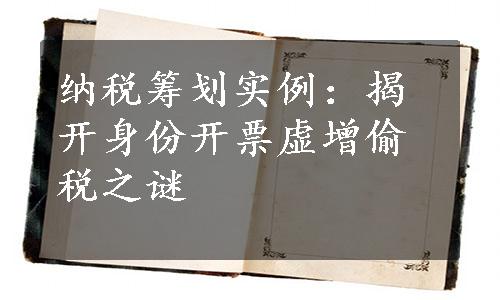 纳税筹划实例：揭
开身份开票虚增偷
税之谜